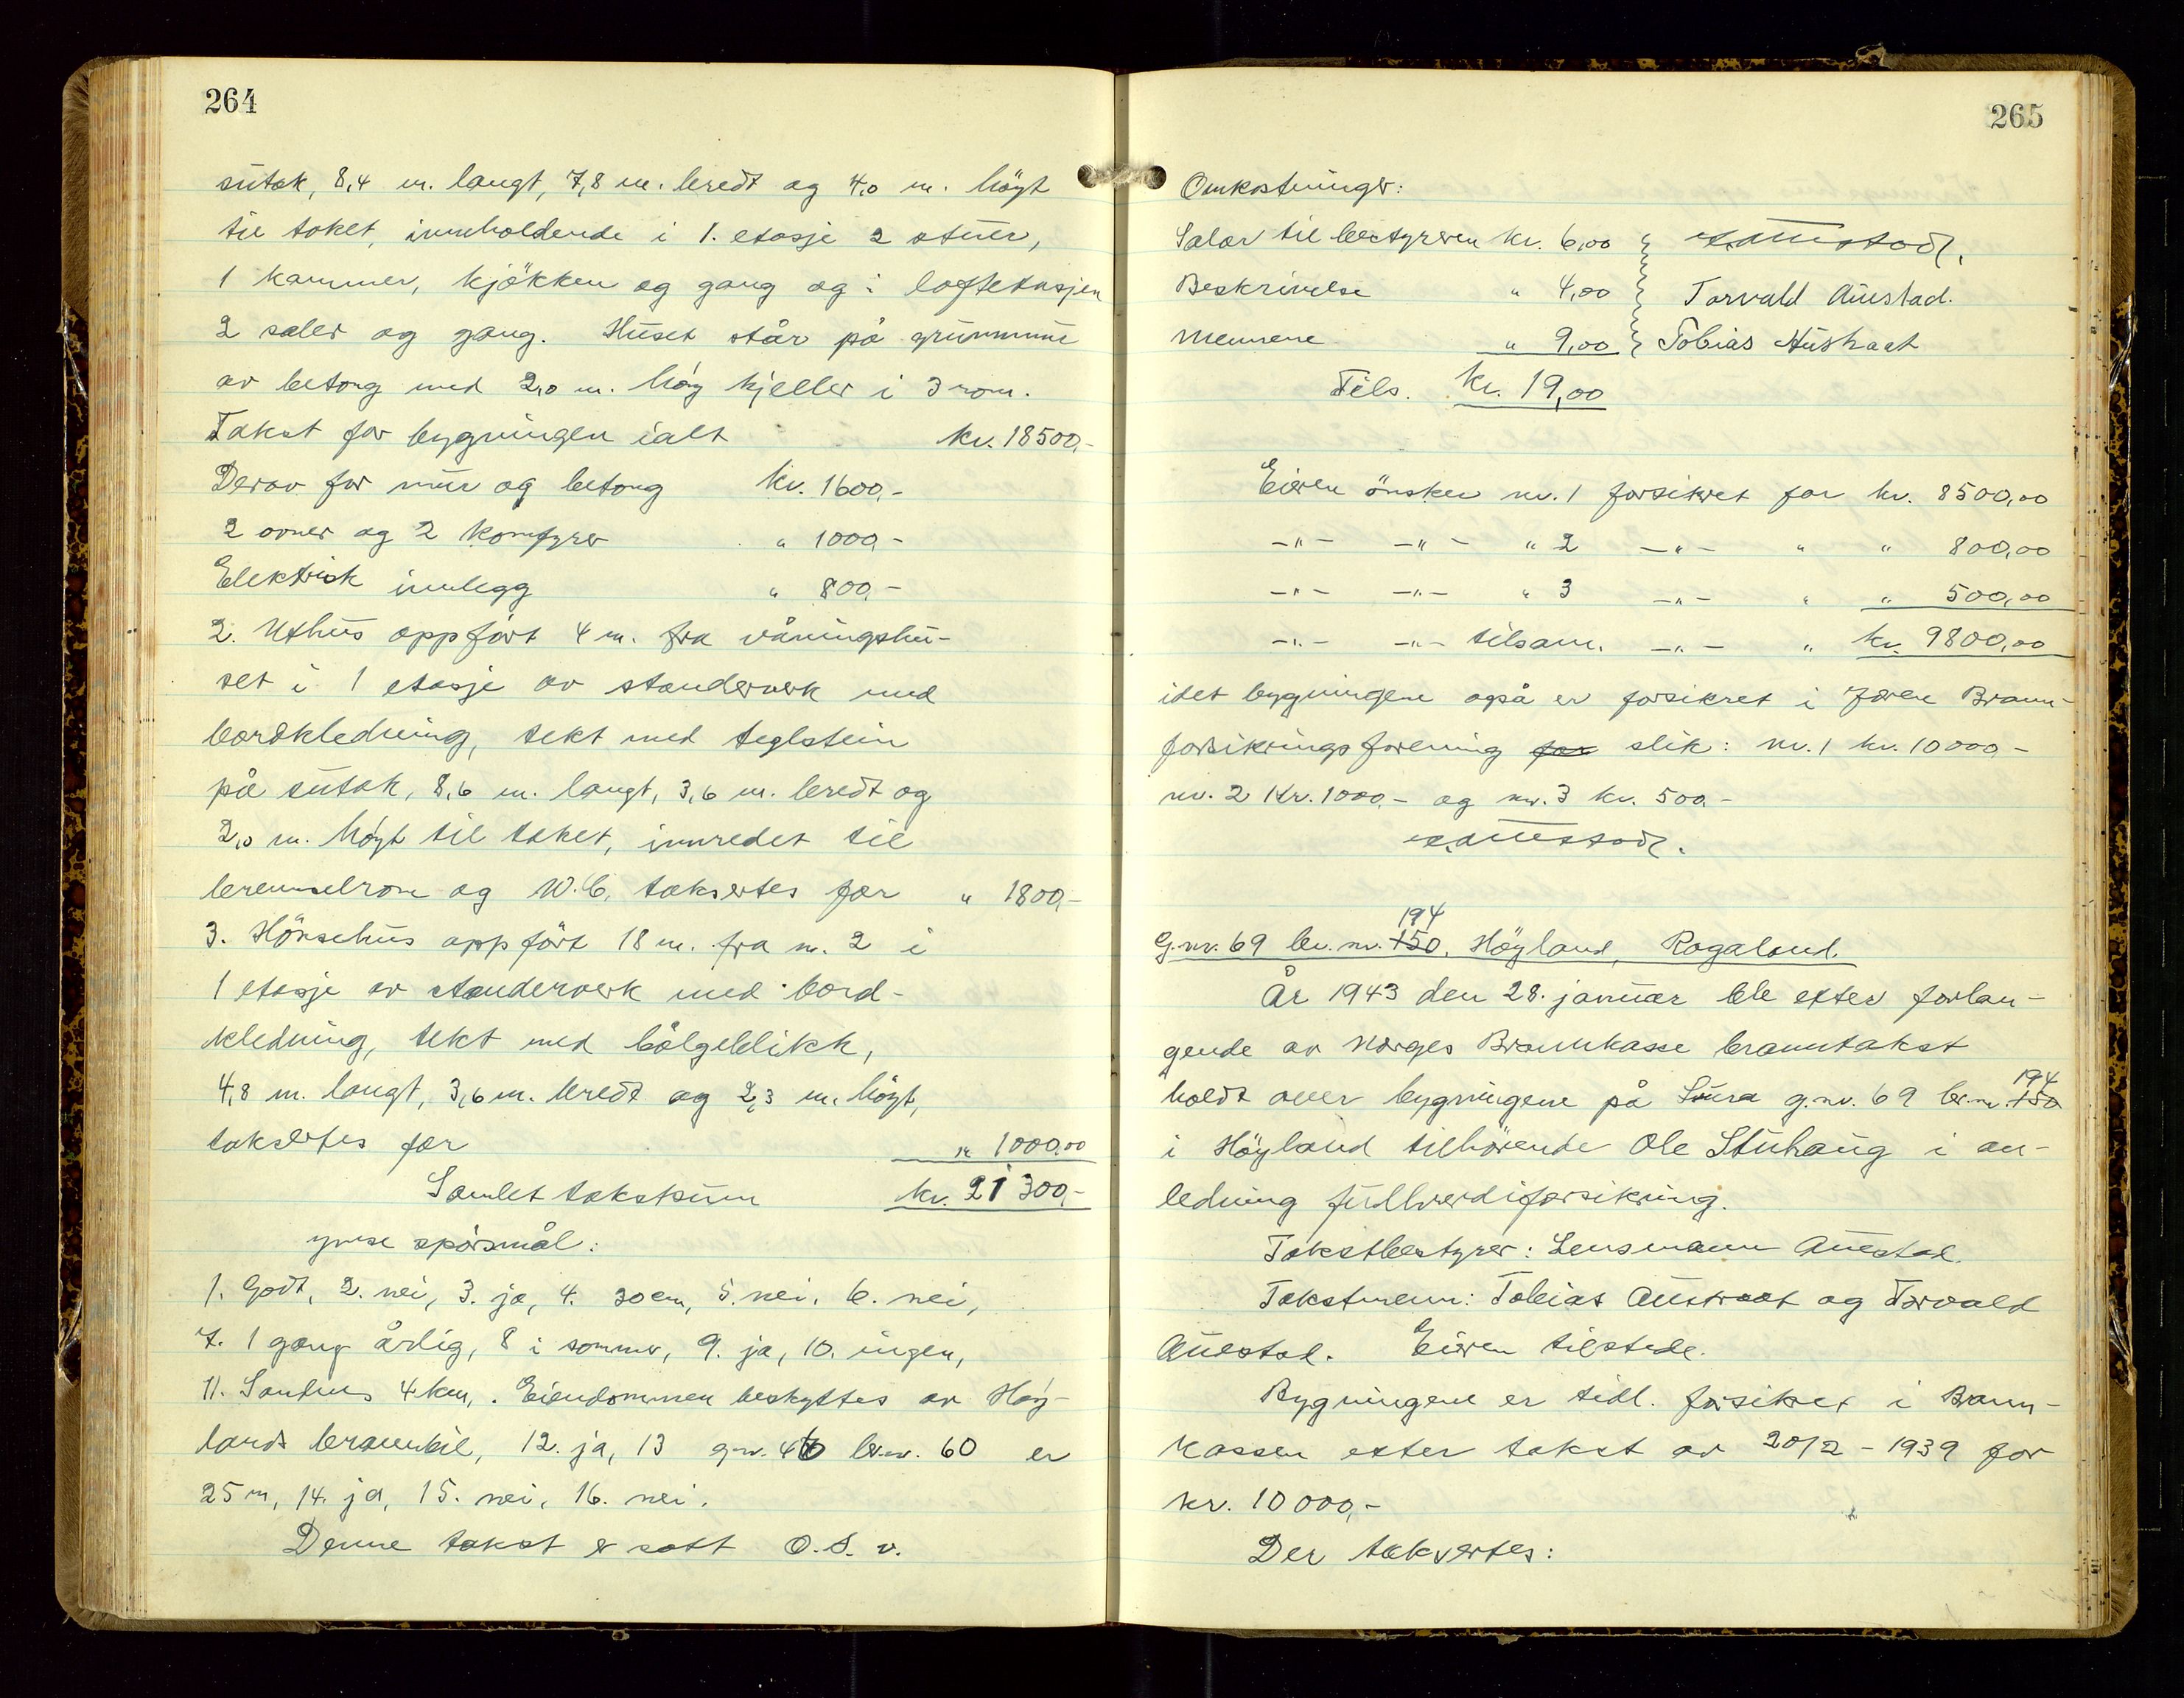 264
sutak, 8,4 m. langt, 7,8 m. bredt og 4,0 m. höyt
til taket, inneholdende i 1. etasje 2 stuer,
1 kammer, kjökken og gang og i loftetasjen
2 saler og gang. Huset står på grunnmur
av betong med 2,0 m. höy kjeller i 3 rom.
Takst for bygningen ialt kr. 18500,-
Derav for mur og betong kr. 1600,-
2 ovner og 2 komfyrer " 1000,-
Elektrisk innlegg " 800,-
2. Uthus oppfört 4 m. fra våningshu-
set i 1 etasje av standerverk med
bordkledning, tekt med teglstein
på sutak, 8,6 m. langt, 3,6 m. bredt og
2,0 m. höyt til taket, innredet til
brenselrom og W.C. takseres for " 1800,-
3. Hönsehus oppfört 18 m. fra n. 2 i
1 etasje av standerverk med bord-
kledning, tekt med bölgeblikk,
4,8 m. langt, 3,6 m. bredt og 2,3 m. höyt,
taksertes for " 1000,00
Samlet takstsum kr. 21300,-
ymse spörsmål:
1. Godt, 2. nei, 3. ja, 4. 30 cm, 5. nei. 6. nei,
7. 1 gang årlig, 8 i sommer, 9. ja, 10. ingen,
11. Sandnes 4 km, . Eiendommen beskyttes av Höy-
lands brannbil, 12. ja, 13 g.nr. 46 br.nr. 60 er
25 m, 14. ja, 15. nei, 16. nei.
Denne takst er satt O.S.v.
265
Omkostninger:
Salær til bestyreren kr. 6,00 Auestad.
Beskrivelse " 4,00 Torvald Auestad.
Mennene " 9,00 Tobias Austraat
Tils. kr. 19,00
Eieren önsker nr. 1 forsikret for kr. 8500,00
-"- -"- " 2 -"- " " 800,00
-"- -"- " 3 -"- " " 500,00
-"- -"- tilsam. -"- " kr. 9800,00
idet bygningene også er forsikret i Jæren Brann-
forsikringsforening for slik: nr. 1 kr. 10000,-
nr. 2 kr. 1000,- og nr. 3 kr. 500.-
Auestad.
194
G.nr. 69 br.nr. 150. Höyland, Rogaland.
År 1943 den 28. januar ble efter forlan-
gende av Norges Brannkasse branntakst
194
holdt over bygningene på Lura g.nr. 69 br.nr. 150
i Höyland tilhörende Ole Stuhaug i an-
ledning fullverdiforsikring.
Takstbestyrer: Lensmann Auestad.
Takstmenn: Tobias Austraat og Torvald
Auestad. Eieren tilstede.
Bygningene er tidl. forsikret i Brann-
kassen efter takst av 20/2 - 1939 for
kr. 10000,-
Der taksertes: